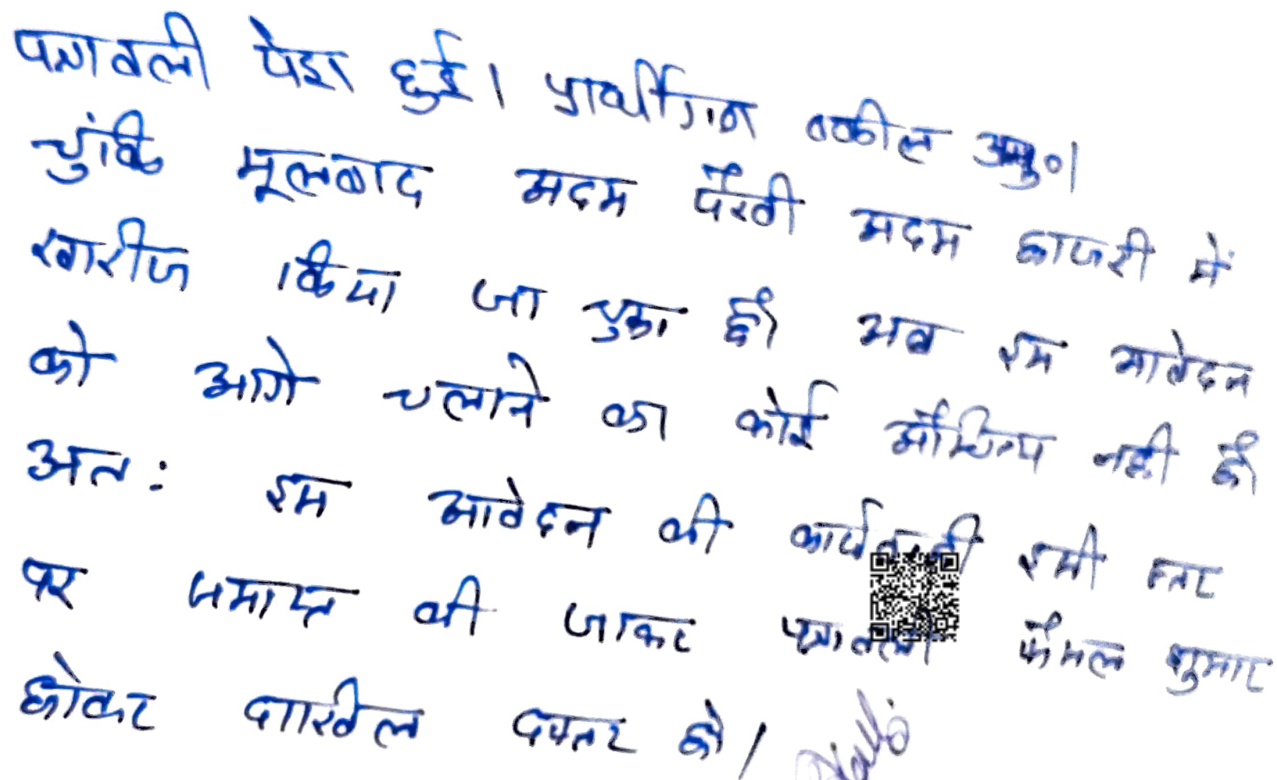 पत्रावली पेश हुई। प्रार्थीगण वकील अनु०।
चुंकि मूलवाद अदम पैरवी अदम हाजरी में
खारीज किया जा चुका है। अब इस आवेदन
को आगे चलाने का कोई औचित्य नही है।
अतः इस आवेदन की कार्यवाही इसी स्तर
पर समाप्त की जाकर पत्रावली फैसल शुमार
होकर दाखील दफ्तर हो।